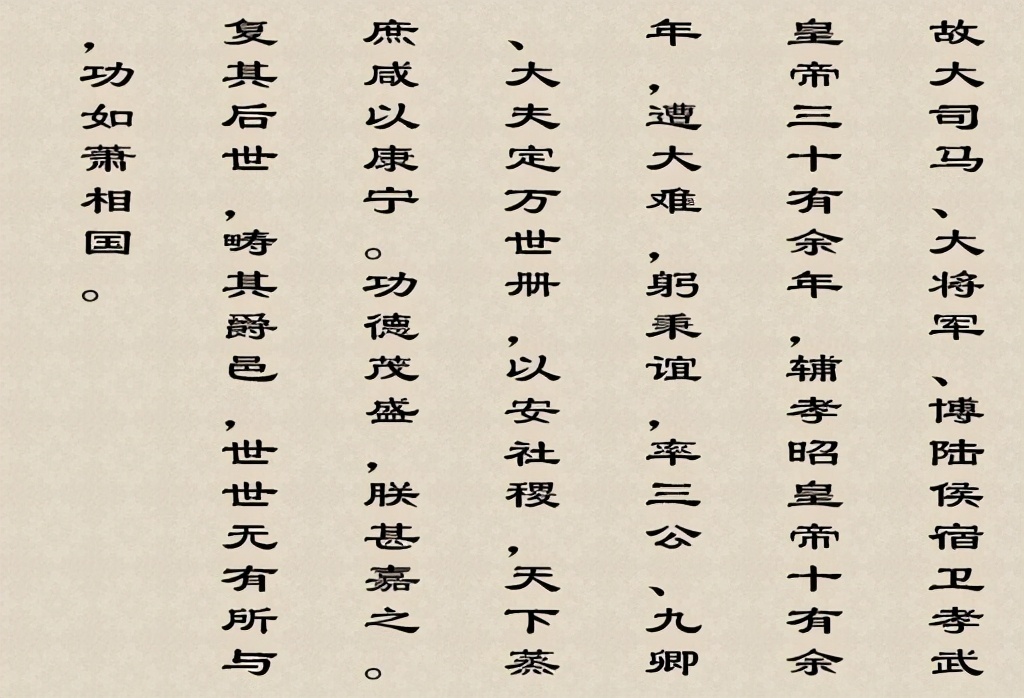 故大司马、大将军、博陆侯宿卫孝武
皇帝三十有余年，辅孝昭皇帝十有余
年，遭大难，躬秉谊，率三公、九卿
、大夫定万世册，以安社稷，天下蒸
庶咸以康宁。功德茂盛，朕甚嘉之。
复其后世，畴其爵邑，世世无有所与
，功如萧相国。